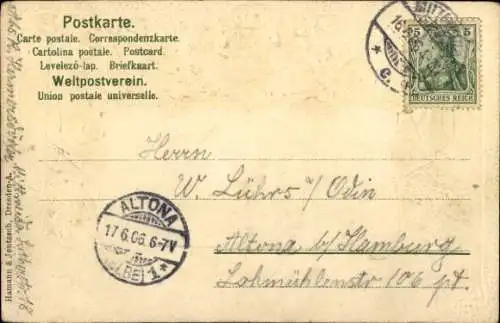 Postkarte.
Carte postale. Correspondenzkarte.
Cartolina postale. Postcard.
Levelező-lap. Briefkaart.
Weltpostverein.
Union postale universelle.
5 5
DEUTSCHES REICH
Herrn
W. Lührs / Odin
Altona b/Hamburg
Lohmühlenstr 106 pt.
ALTONA
17.6.06.6-7V
(ELBE) 1*
Hamann & Jentzsch, Dresden-A.